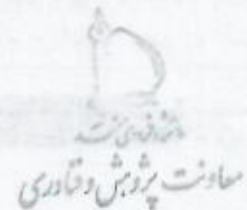 دانشگاه فردوسی مشهد
معاونت پژوهش و فناوری